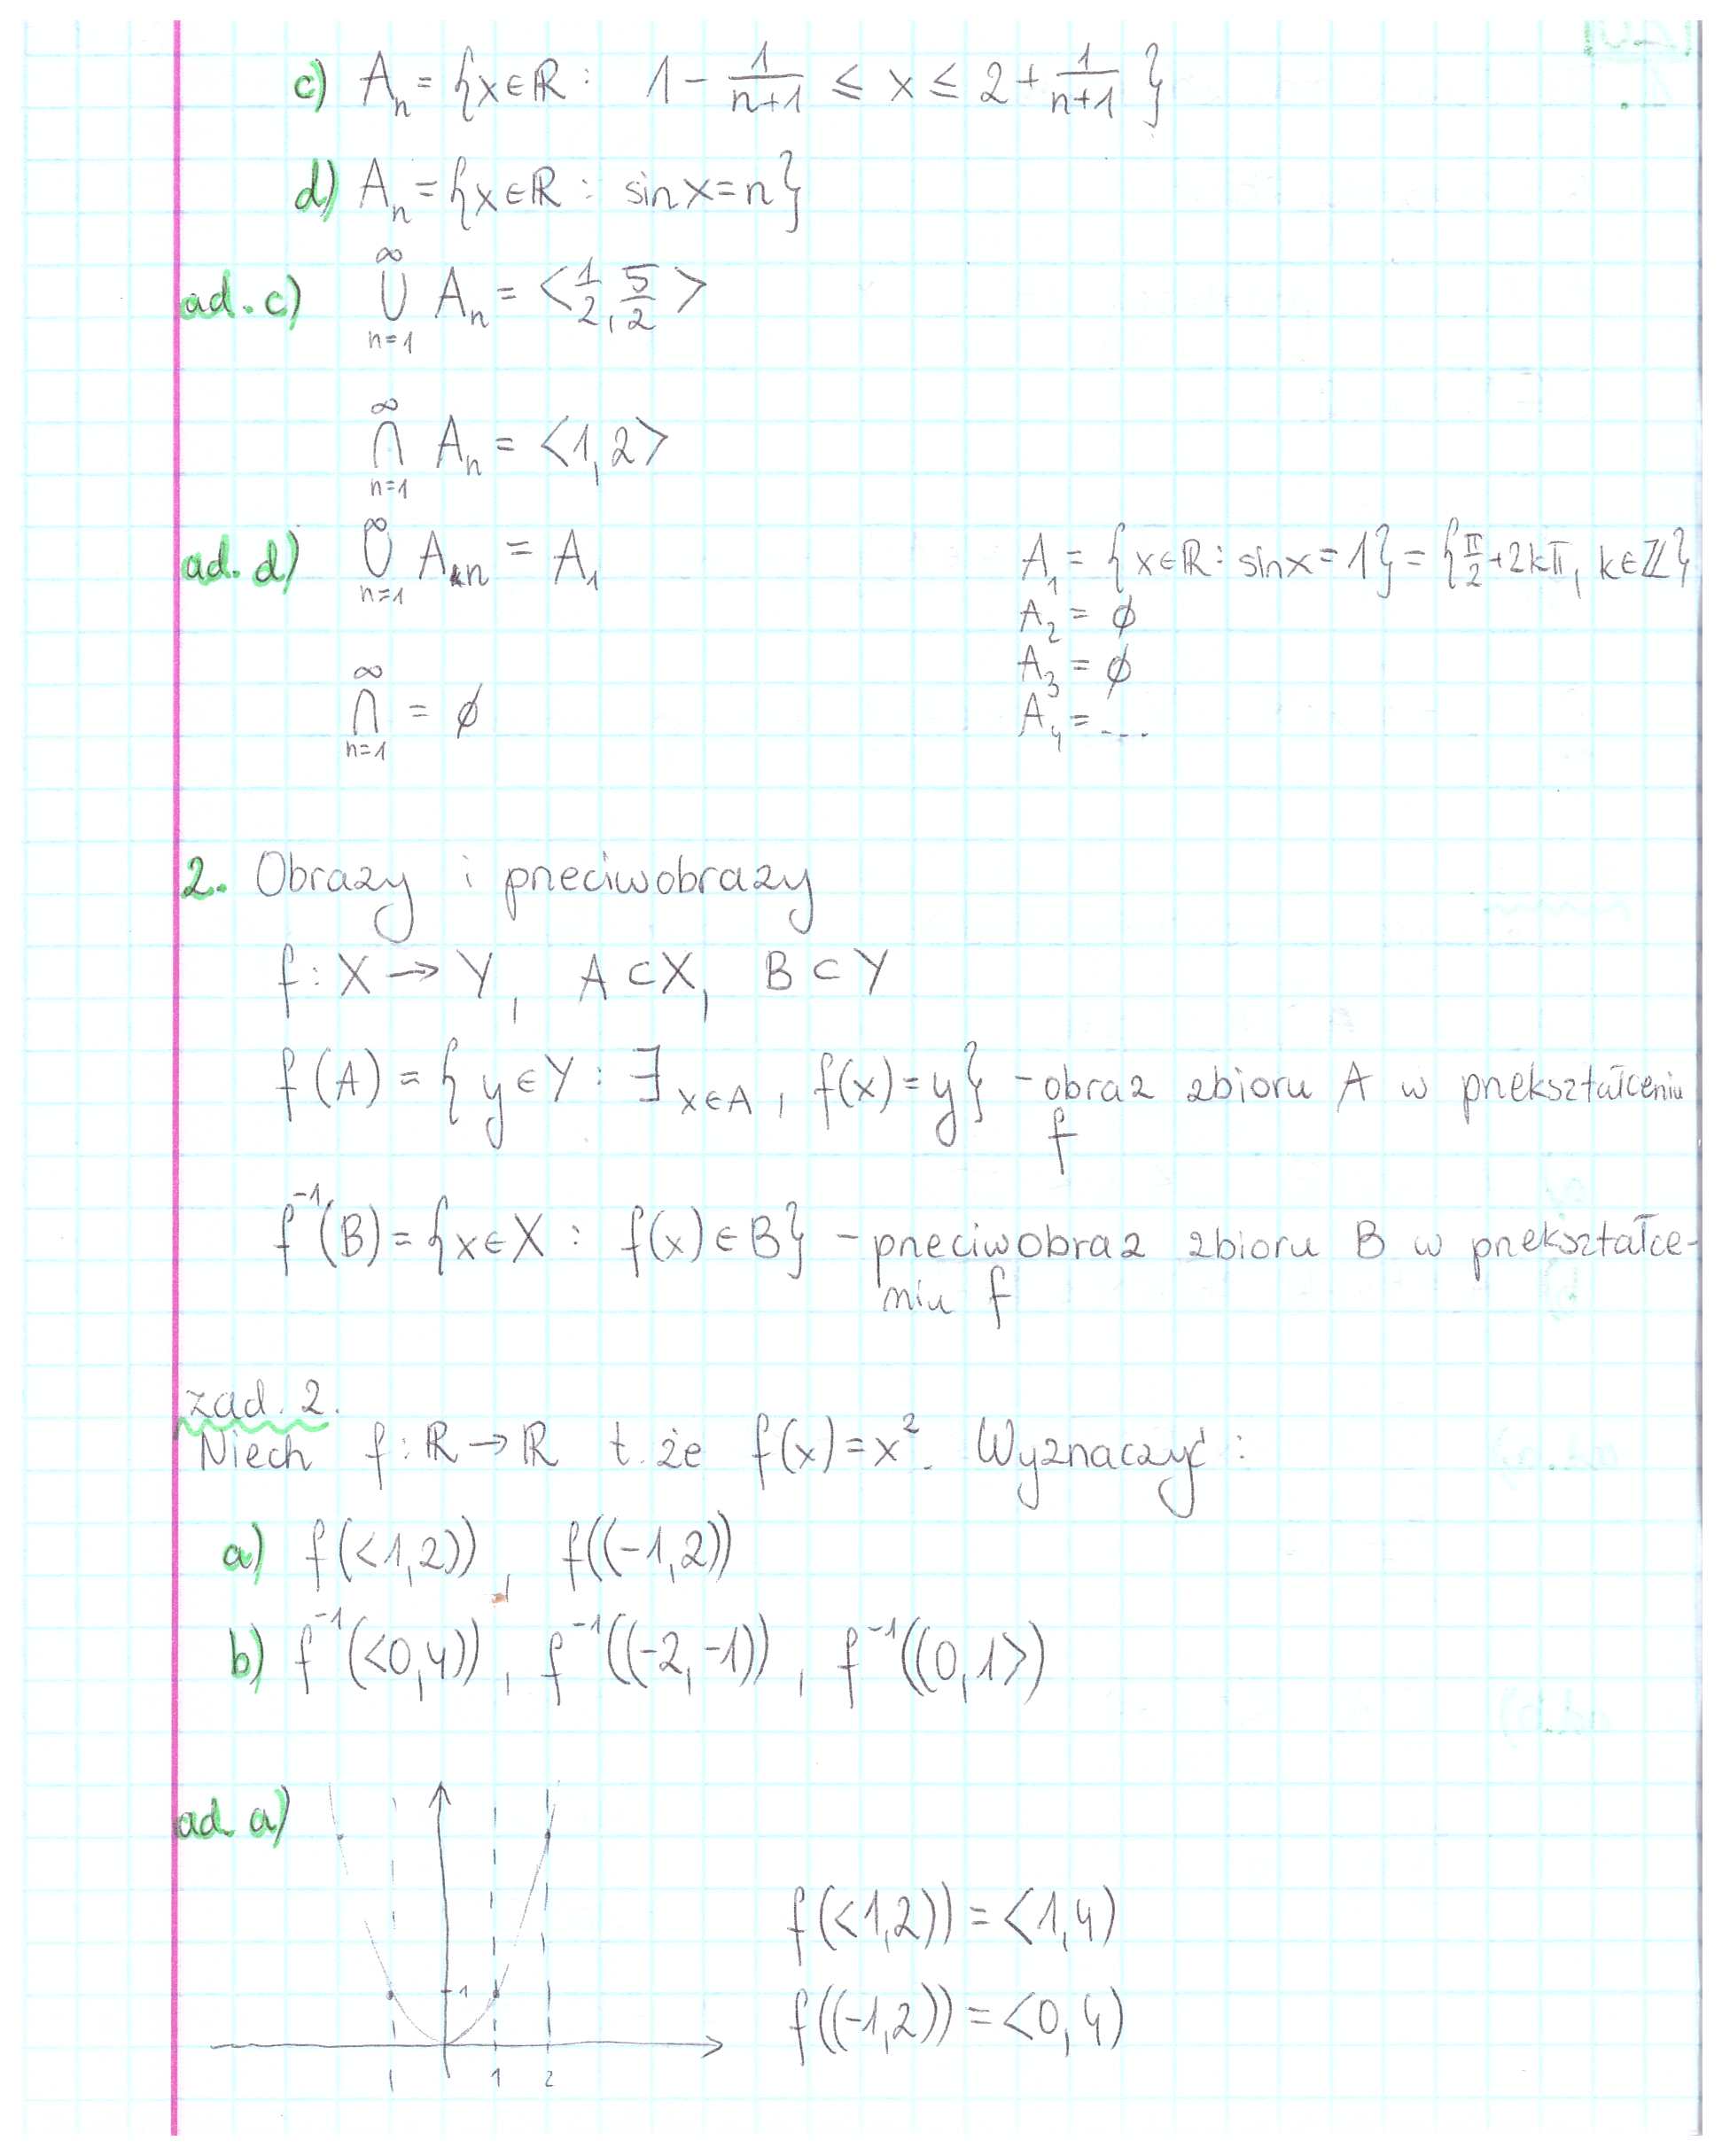 c) Aₙ = {x∈ℝ : 1 - 1/(n+1) ≤ x ≤ 2 + 1/(n+1)}
d) Aₙ = {x∈ℝ : sin x = n}
ad. c) ⋃_{n=1}^{∞} Aₙ = <1/2, 5/2>
⋂_{n=1}^{∞} Aₙ = <1,2>
ad. d) ⋃_{n=1}^{∞} Aₙ = A₁
A₁ = {x∈ℝ : sin x = 1} = {π/2 + 2kπ, k∈ℤ}
A₂ = ∅
A₃ = ∅
A₄ = ...
⋂_{n=1}^{∞} = ∅
2. Obrazy i przeciwobrazy
f : X → Y, A ⊂ X, B ⊂ Y
f(A) = {y∈Y : ∃_{x∈A}, f(x) = y} - obraz zbioru A w przekształceniu
f
f⁻¹(B) = {x∈X : f(x)∈B} - przeciwobraz zbioru B w przekształce-
niu f
zad. 2.
Niech f : ℝ → ℝ t. że f(x) = x². Wyznaczyć :
a) f(<1,2)) , f((-1,2))
b) f⁻¹(<0,4)) , f⁻¹((-2,-1)) , f⁻¹((0,1>)
ad. a)
1
1 1 2
f(<1,2)) = <1,4)
f((-1,2)) = <0,4)